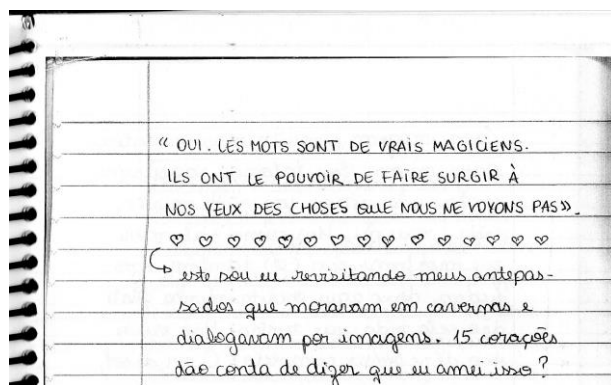 “ OUI. LES MOTS SONT DE VRAIS MAGICIENS.
ILS ONT LE POUVOIR DE FAIRE SURGIR À
NOS YEUX DES CHOSES QUE NOUS NE VOYONS PAS».
♡ ♡ ♡ ♡ ♡ ♡ ♡ ♡ ♡ ♡ ♡ ♡ ♡ ♡ ♡
↳ este sou eu revisitando meus antepas-
sados que moravam em cavernas e
dialogavam por imagens. 15 corações
dão conta de dizer que eu amei isso?